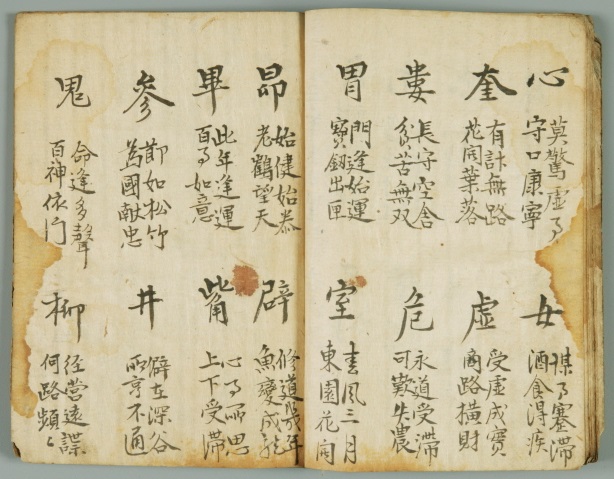 心
莫驚虛事
守口康寧
女
謀事蹇滯
酒食得疾
奎
有計無路
花開葉落
虛
受虛成寶
商路橫財
婁
長守空舍
貧苦無双
危
永道受滯
可歎失農
胃
門逢始運
寶釼出匣
室
春風三月
東園花開
昴
始健始恭
老鶴望天
辟
修道幾年
魚變成龍
畢
此年逢運
百事如意
觜
心事所思
上下受滯
參
節如松竹
為國献忠
井
僻在深谷
所亨不通
鬼
命逢多聲
百神依門
柳
經營遠謀
何路頻々